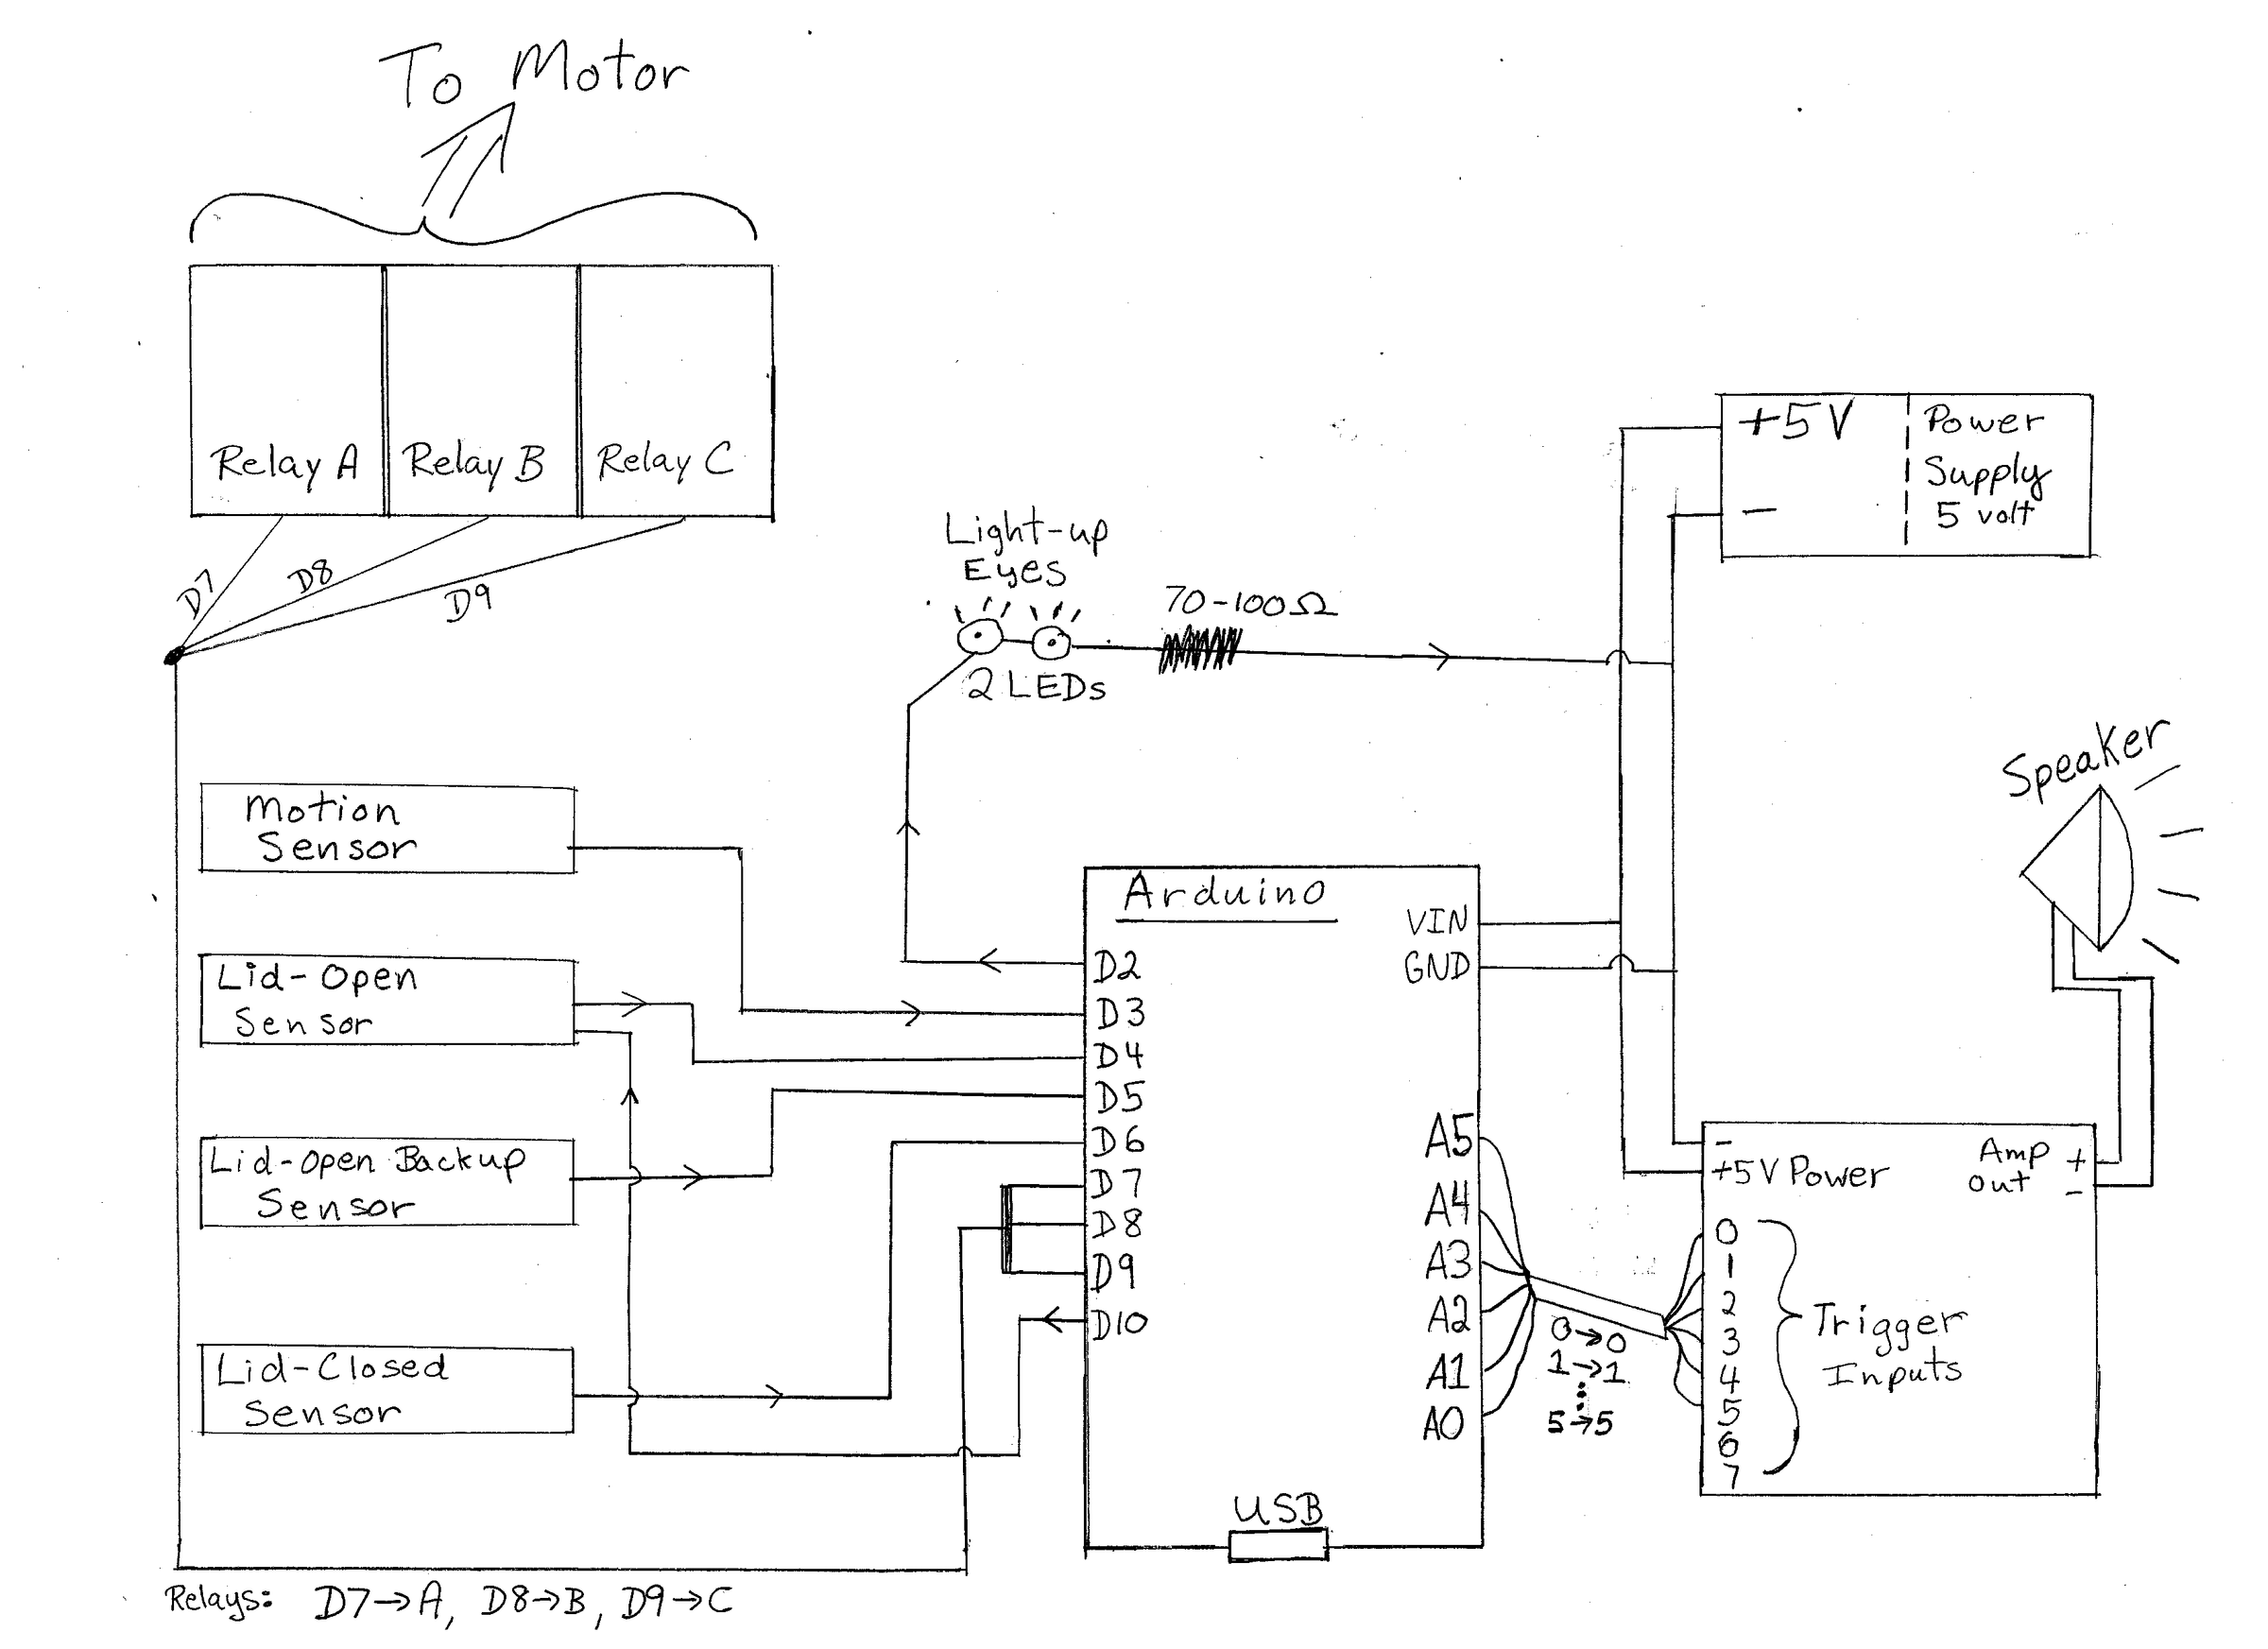 To Motor
Relay A
Relay B
Relay C
D7
D8
D9
Light-up
Eyes
2 LEDs
70-100Ω
+5V
-
Power
Supply
5 volt
Speaker
Motion
Sensor
Lid-Open
Sensor
Lid-Open Backup
Sensor
Lid-Closed
Sensor
Arduino
VIN
GND
D2
D3
D4
D5
D6
D7
D8
D9
D10
A5
A4
A3
A2
A1
A0
USB
0→0
1→1
⋮
5→5
-
+5V Power
Amp
out
+
-
0
1
2
3
4
5
6
7
Trigger
Inputs
Relays: D7→A, D8→B, D9→C